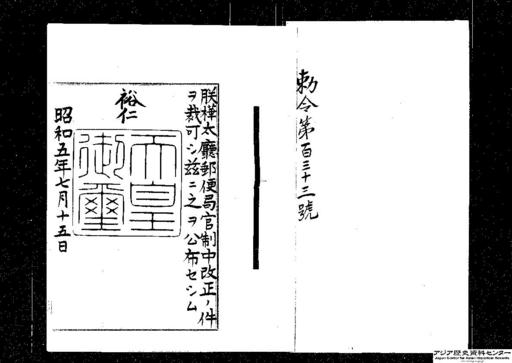 勅令第百三十三號
朕樺太廳郵便局官制中改正ノ件
ヲ裁可シ茲ニ之ヲ公布セシム
裕仁
天皇
御璽
昭和五年七月十五日
アジア歴史資料センター
Japan Center for Asian Historical Records